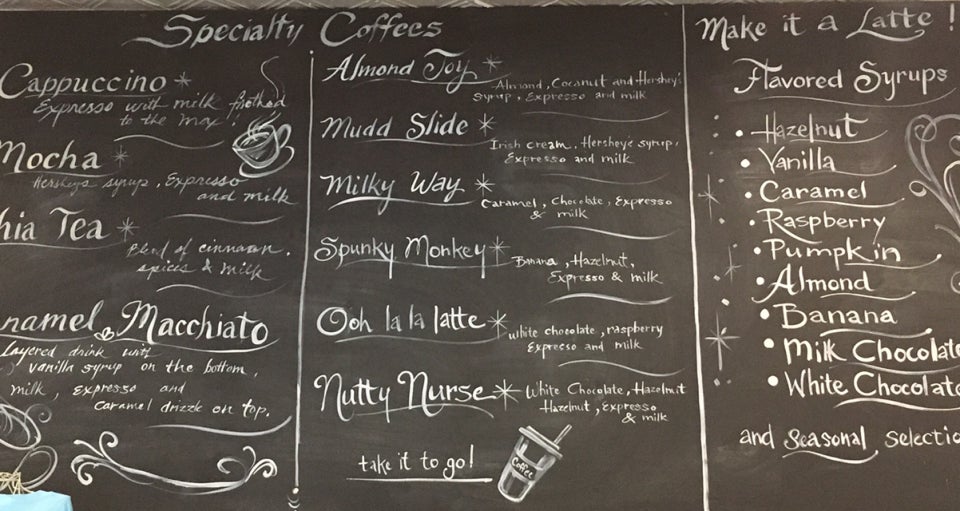 Specialty Coffees
Cappuccino
Expresso with milk frothed
to the max!
Mocha
Hersheys syrup, Expresso
and milk
hia Tea
Blend of cinnamon,
spices & milk
ramel Macchiato
Layered drink with
vanilla syrup on the bottom,
milk, expresso and
caramel drizzle on top.
Almond Joy
Almond, Coconut and Hershey's
syrup, Expresso and milk
Mudd Slide
Irish cream, Hershey's syrup,
Expresso and milk
Milky Way
Caramel, Chocolate, Expresso
& milk
Spunky Monkey
Banana, Hazelnut,
Expresso & milk
Ooh la la latte
white chocolate, raspberry
Expresso and milk
Nutty Nurse
White Chocolate, Hazelnut
Hazelnut, Expresso
& milk
take it to go!
Coffee
Make it a Latte!
Flavored Syrups
• Hazelnut
• Vanilla
• Caramel
• Raspberry
• Pumpkin
• Almond
• Banana
• Milk Chocolate
• White Chocolate
and Seasonal Selectio